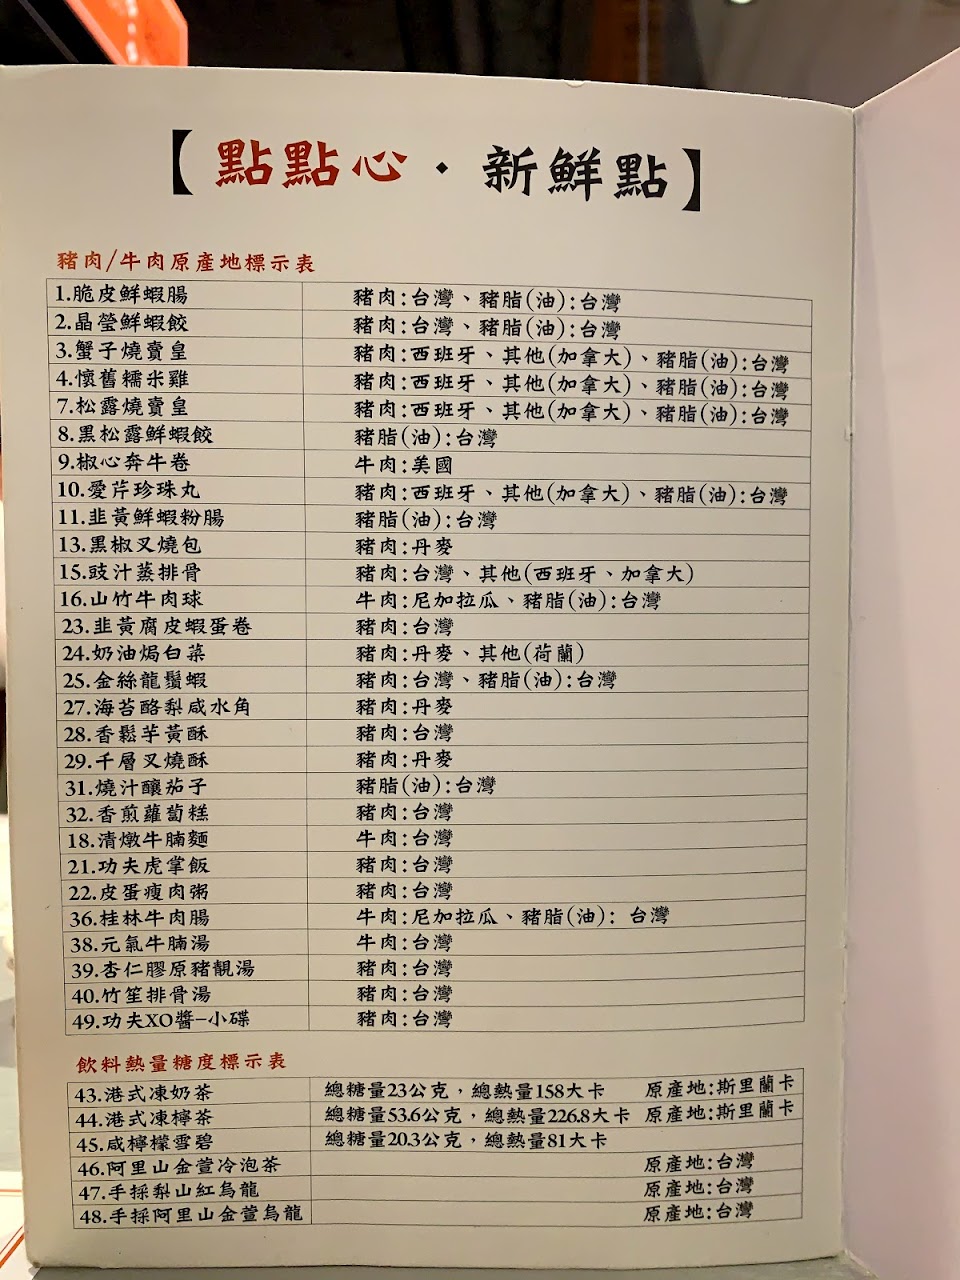 【點點心・新鮮點】
豬肉/牛肉原產地標示表
1.脆皮鮮蝦腸 豬肉:台灣、豬脂(油):台灣
2.晶瑩鮮蝦餃 豬肉:台灣、豬脂(油):台灣
3.蟹子燒賣皇 豬肉:西班牙、其他(加拿大)、豬脂(油):台灣
4.懷舊糯米雞 豬肉:西班牙、其他(加拿大)、豬脂(油):台灣
7.松露燒賣皇 豬肉:西班牙、其他(加拿大)、豬脂(油):台灣
8.黑松露鮮蝦餃 豬脂(油):台灣
9.椒心奔牛卷 牛肉:美國
10.愛芹珍珠丸 豬肉:西班牙、其他(加拿大)、豬脂(油):台灣
11.韭黃鮮蝦粉腸 豬脂(油):台灣
13.黑椒叉燒包 豬肉:丹麥
15.豉汁蒸排骨 豬肉:台灣、其他(西班牙、加拿大)
16.山竹牛肉球 牛肉:尼加拉瓜、豬脂(油):台灣
23.韭黃腐皮蝦蛋卷 豬肉:台灣
24.奶油焗白菜 豬肉:丹麥、其他(荷蘭)
25.金絲龍鬚蝦 豬肉:台灣、豬脂(油):台灣
27.海苔酪梨咸水角 豬肉:丹麥
28.香鬆芋黃酥 豬肉:台灣
29.千層叉燒酥 豬肉:丹麥
31.燒汁釀茄子 豬脂(油):台灣
32.香煎蘿蔔糕 豬肉:台灣
18.清燉牛腩麵 牛肉:台灣
21.功夫虎掌飯 豬肉:台灣
22.皮蛋瘦肉粥 豬肉:台灣
36.桂林牛肉腸 牛肉:尼加拉瓜、豬脂(油): 台灣
38.元氣牛腩湯 牛肉:台灣
39.杏仁膠原豬靚湯 豬肉:台灣
40.竹笙排骨湯 豬肉:台灣
49.功夫XO醬-小碟 豬肉:台灣
飲料熱量糖度標示表
43.港式凍奶茶 總糖量23公克，總熱量158大卡 原產地:斯里蘭卡
44.港式凍檸茶 總糖量53.6公克，總熱量226.8大卡 原產地:斯里蘭卡
45.咸檸檬雪碧 總糖量20.3公克，總熱量81大卡
46.阿里山金萱冷泡茶 原產地:台灣
47.手採梨山紅烏龍 原產地:台灣
48.手採阿里山金萱烏龍 原產地:台灣